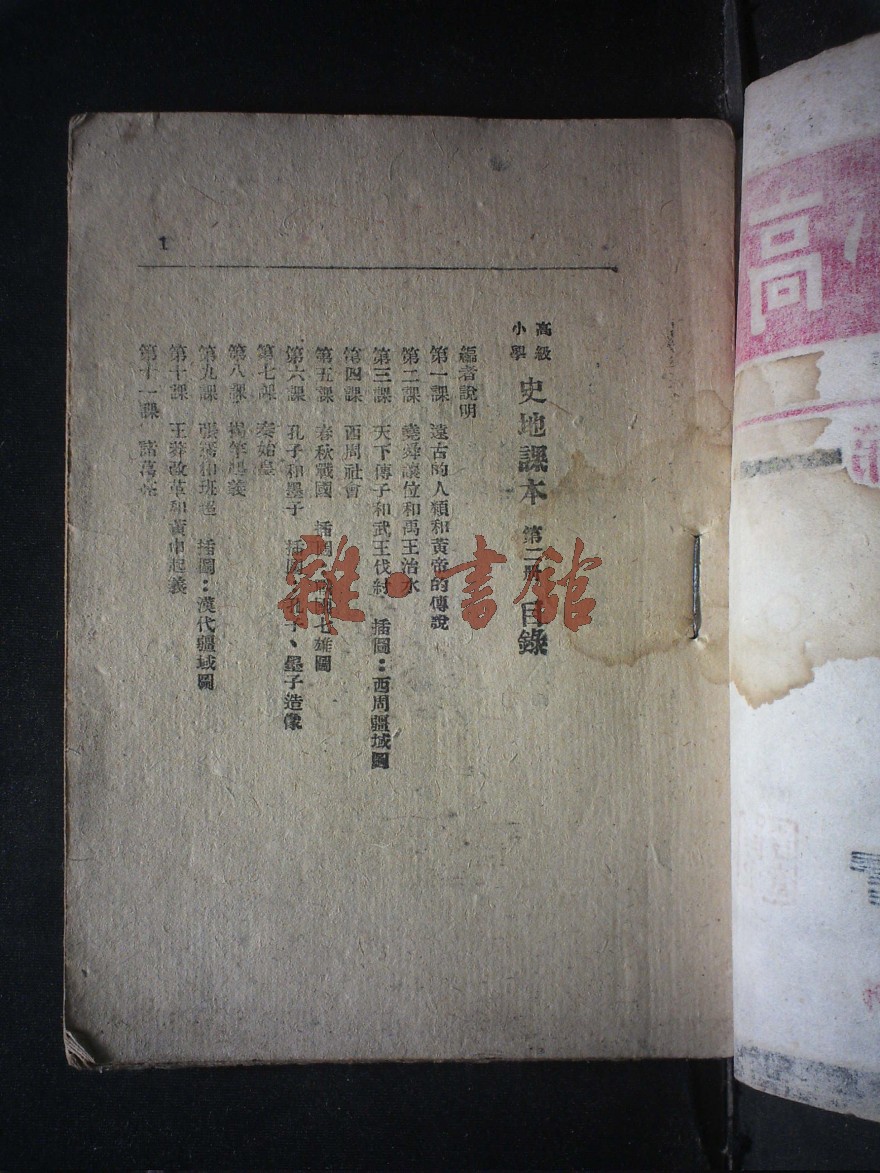 1
高級小學 史地課本 第二册 目錄
編者說明
第一課 遠古的人類和黃帝的傳說
第二課 堯舜讓位和禹王治水
第三課 天下傳子和武王伐紂 插圖：西周疆域圖
第四課 西周社會
第五課 春秋戰國 插圖：戰國七雄圖
第六課 孔子和墨子 插圖：孔子、墨子造像
第七課 秦始皇
第八課 揭竿起義
第九課 張騫和班超 插圖：漢代疆域圖
第十課 王莽改革和黃巾起義
第十一課 諸葛亮
雜·書館
高